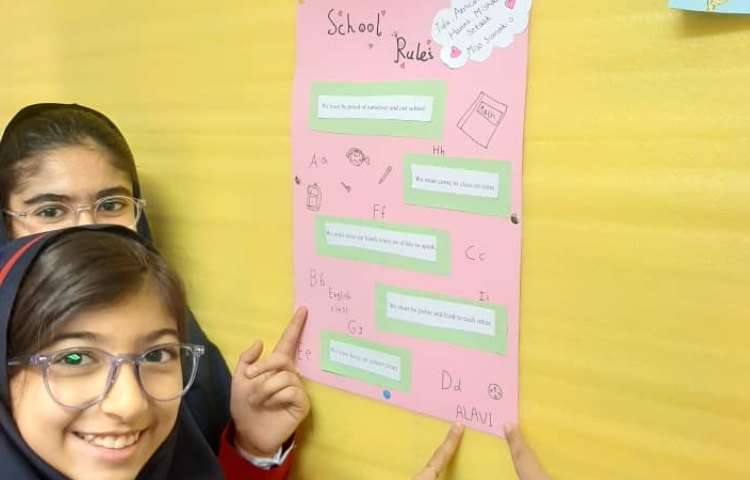 School
Rules
Miss
We must be proud of ourselves and our school
Math
Hh
Aa
We must come to class on time
Ff
We must raise our hands when we'd like to speak
Cc
Bb
English
class
Ii
We must be polite and kind to each other
Gg
We must keep our school clean
Ee
Dd
ALAVI